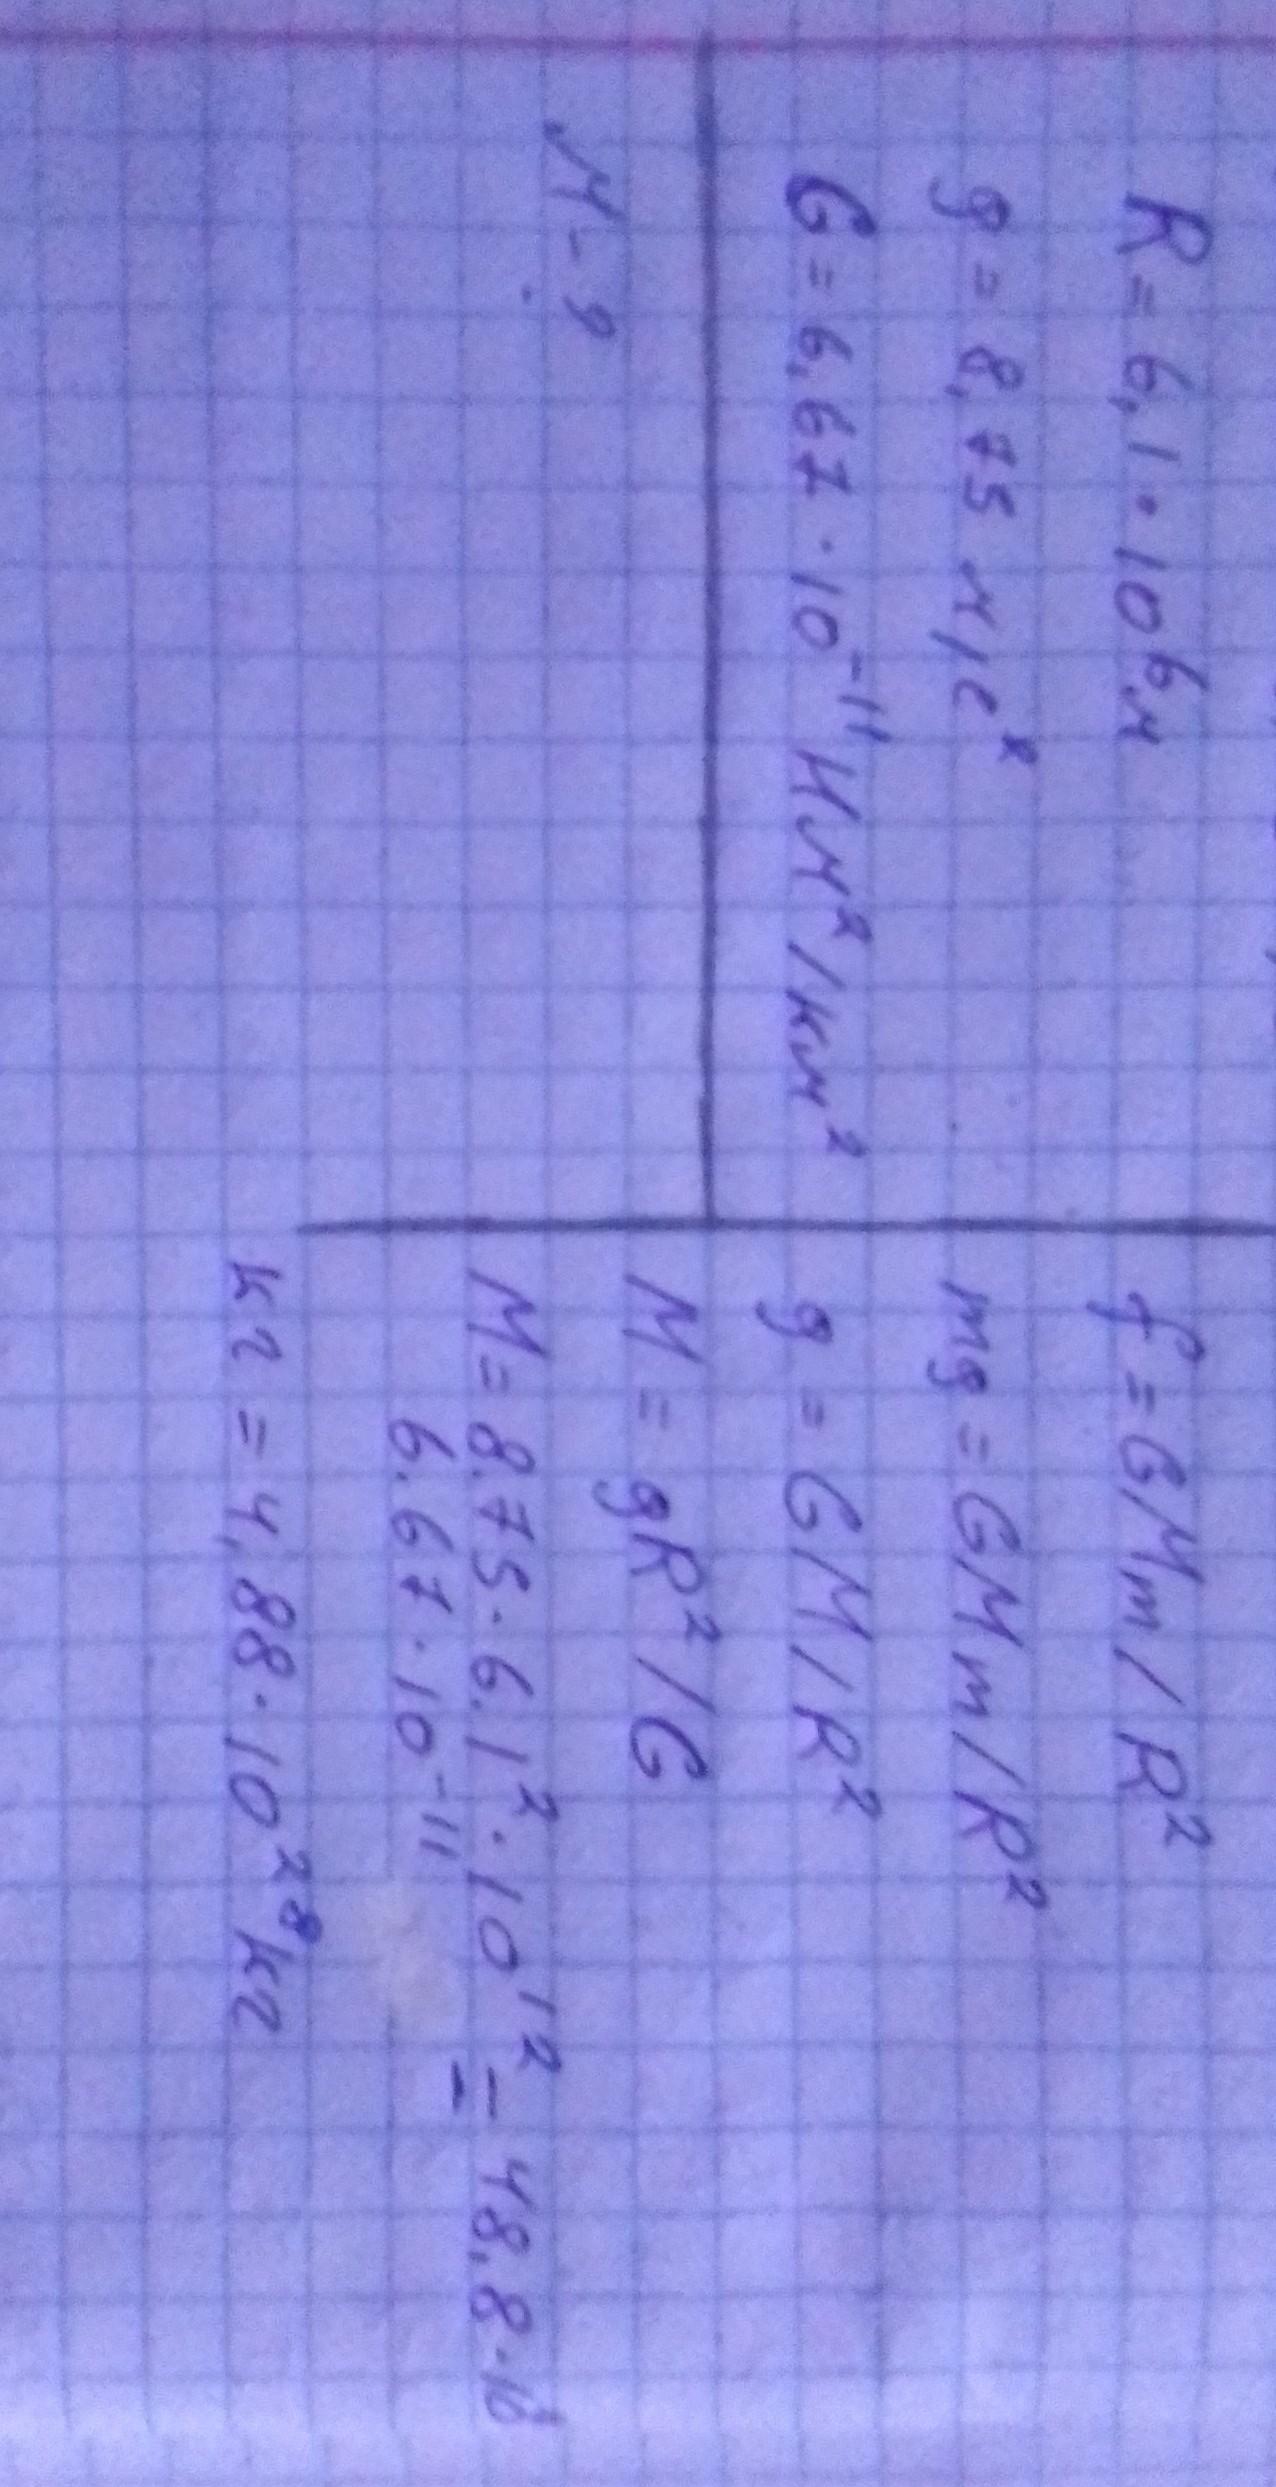 R = 6,1 · 10⁶ м
g = 8,75 м/с²
G = 6,67 · 10⁻¹¹ Нм²/км²
М - ?
f = GMm/R²
mg = GMm/R²
g = GM/R²
M = gR²/G
M = 8.75 · 6.1² · 10¹² = 48,8 ·
6.67 · 10⁻¹¹
кг = 4,88 · 10²⁸ кг